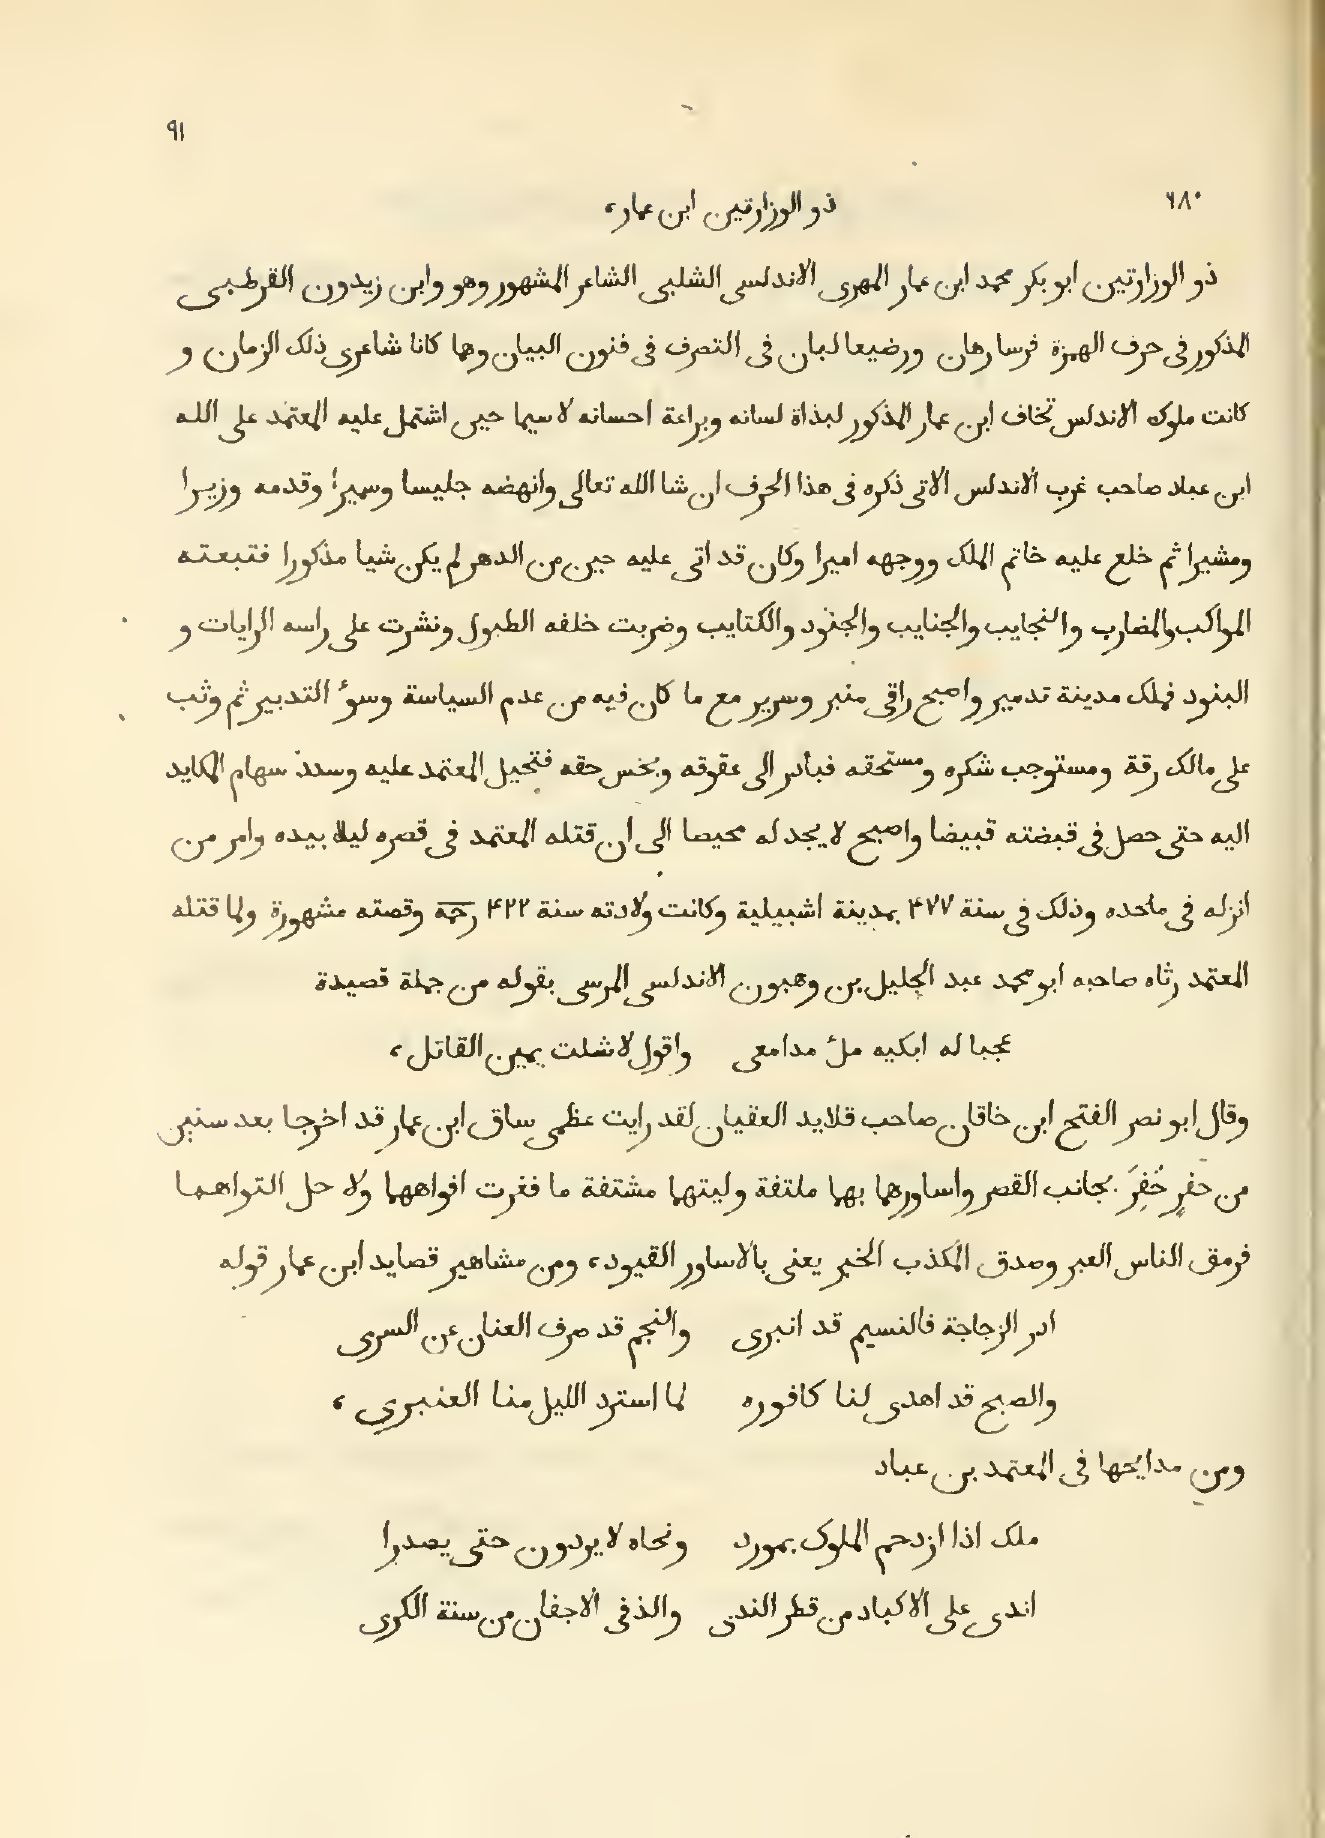 ٩١
٦٨٠
ذو الوزارتين ابن عمار،
ذو الوزارتين ابو بكر محمد ابن عمار المهرى الاندلسى الشلبى الشاعر المشهور وهو وابن زيدون القرطبى
المذكور فى حرف الهمزة فرسا رهان ورضيعا لبان فى التصرف فى فنون البيان وهما كانا شاعرى ذلك الزمان و
كانت ملوك الاندلس تخاف ابن عمار المذكور لبذاة لسانه وبراعة احسانه لا سيما حين اشتمل عليه المعتمد على الله
ابن عباد صاحب غرب الاندلس الاتى ذكره فى هذا الحرف ان شا الله تعالى وانهضه جليسا وسميرا وقدمه وزيرا
ومشيرا ثم خلع عليه خاتم الملك ووجهه اميرا وكان قد اتى عليه حين من الدهر لم يكن شيا مذكورا فتبعته
المواكب والمضارب والنجايب والجنايب والجنود والكتايب وضربت خلفه الطبول ونشرت على راسه الرايات و
البنود فملك مدينة تدمير واصبح راقى منبر وسرير مع ما كان فيه من عدم السياسة وسوؑ التدبير ثم وثب
على مالك رقة ومستوجب شكره ومستحقه فبادر الى عقوقه وبخس حقه فتحيل المعتمد عليه وسدد سهام المكايد
اليه حتى حصل فى قبضته قبيضا واصبح لا يجد له محيصا الى ان قتله المعتمد فى قصره ليلا بيده وامر من
انزله فى ملحده وذلك فى سنة ۴٧٧ بمدينة اشبيلية وكانت ولادته سنة ۴٢٢ رحه وقصته مشهورة ولما قتله
المعتمد رثاه صاحبه ابو محمد عبد الجليل بن وهبون الاندلسى المرسى بقوله من جملة قصيدة
عجبا له ابكيه ملؑ مدامعى واقول لا شلت يمين القاتل،
وقال ابو نصر الفتح ابن خاقان صاحب قلايد العقيان لقد رايت عظمى ساق ابن عمار قد اخرجا بعد سنين
من حفرٍ حُفِرَ بجانب القصر واساورهما بهما ملتفة ولبتهما مشتفة ما فغرت افواههما ولا حل التواهما
فرمق الناس العبر وصدق المكذب الخبر يعنى بالاساور القيود، ومن مشاهير قصايد ابن عمار قوله
ادر الزجاجة فالنسيم قد انبرى والنجم قد صرف العنان عن السرى
والصبح قد اهدى لنا كافوره لما استرد الليل منا العنبرى،
ومن مدايحها فى المعتمد بن عباد
ملك اذا ازدحم الملوك بمورد ونحاه لا يردون حتى يصدرا
اندى على الاكباد من قطر الندى والذ فى الاجفان من سنة الكرى